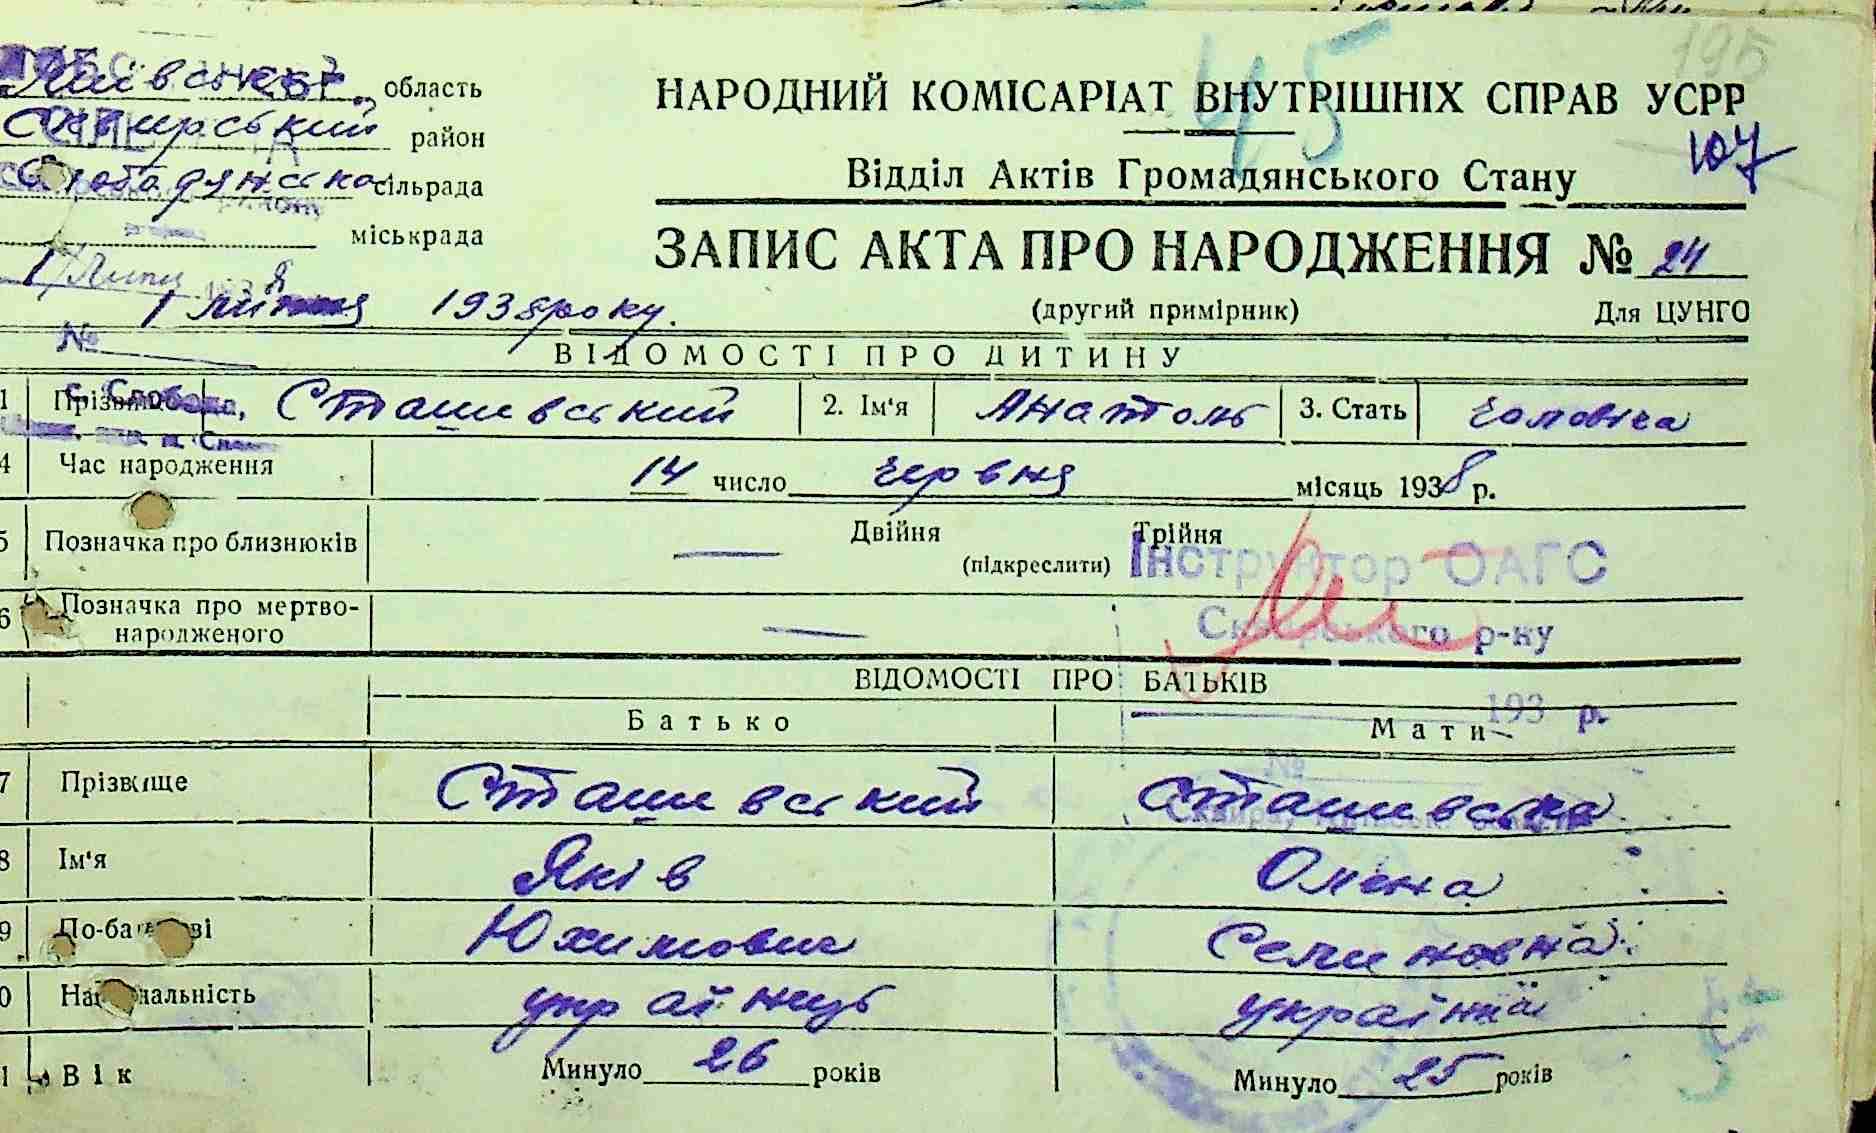 195
45
область
НАРОДНИЙ КОМІСАРІАТ ВНУТРІШНІХ СПРАВ УСРР
район
107
сільрада
Відділ Актів Громадянського Стану
міськрада
ЗАПИС АКТА ПРО НАРОДЖЕННЯ № 24
1 липня 1938 року.
(другий примірник) Для ЦУНГО
№
ВІДОМОСТІ ПРО ДИТИНУ
1 Прізвище Сташевський 2. Ім'я Анатоль 3. Стать чоловіча
4 Час народження 14 число червня місяць 1938 р.
5 Позначка про близнюків — Двійня Трійня
(підкреслити)
Інструктор ОАГС
6 Позначка про мертво-
народженого —
Сквирського р-ку
ВІДОМОСТІ ПРО БАТЬКІВ
193 р.
Батько Мати
№
7 Прізвище Сташевський Сташевська
8 Ім'я Яків Олена
9 По-батькові Юхимович Семиновна
0 Національність українець
1 Вік Минуло 26 років Минуло 25 років